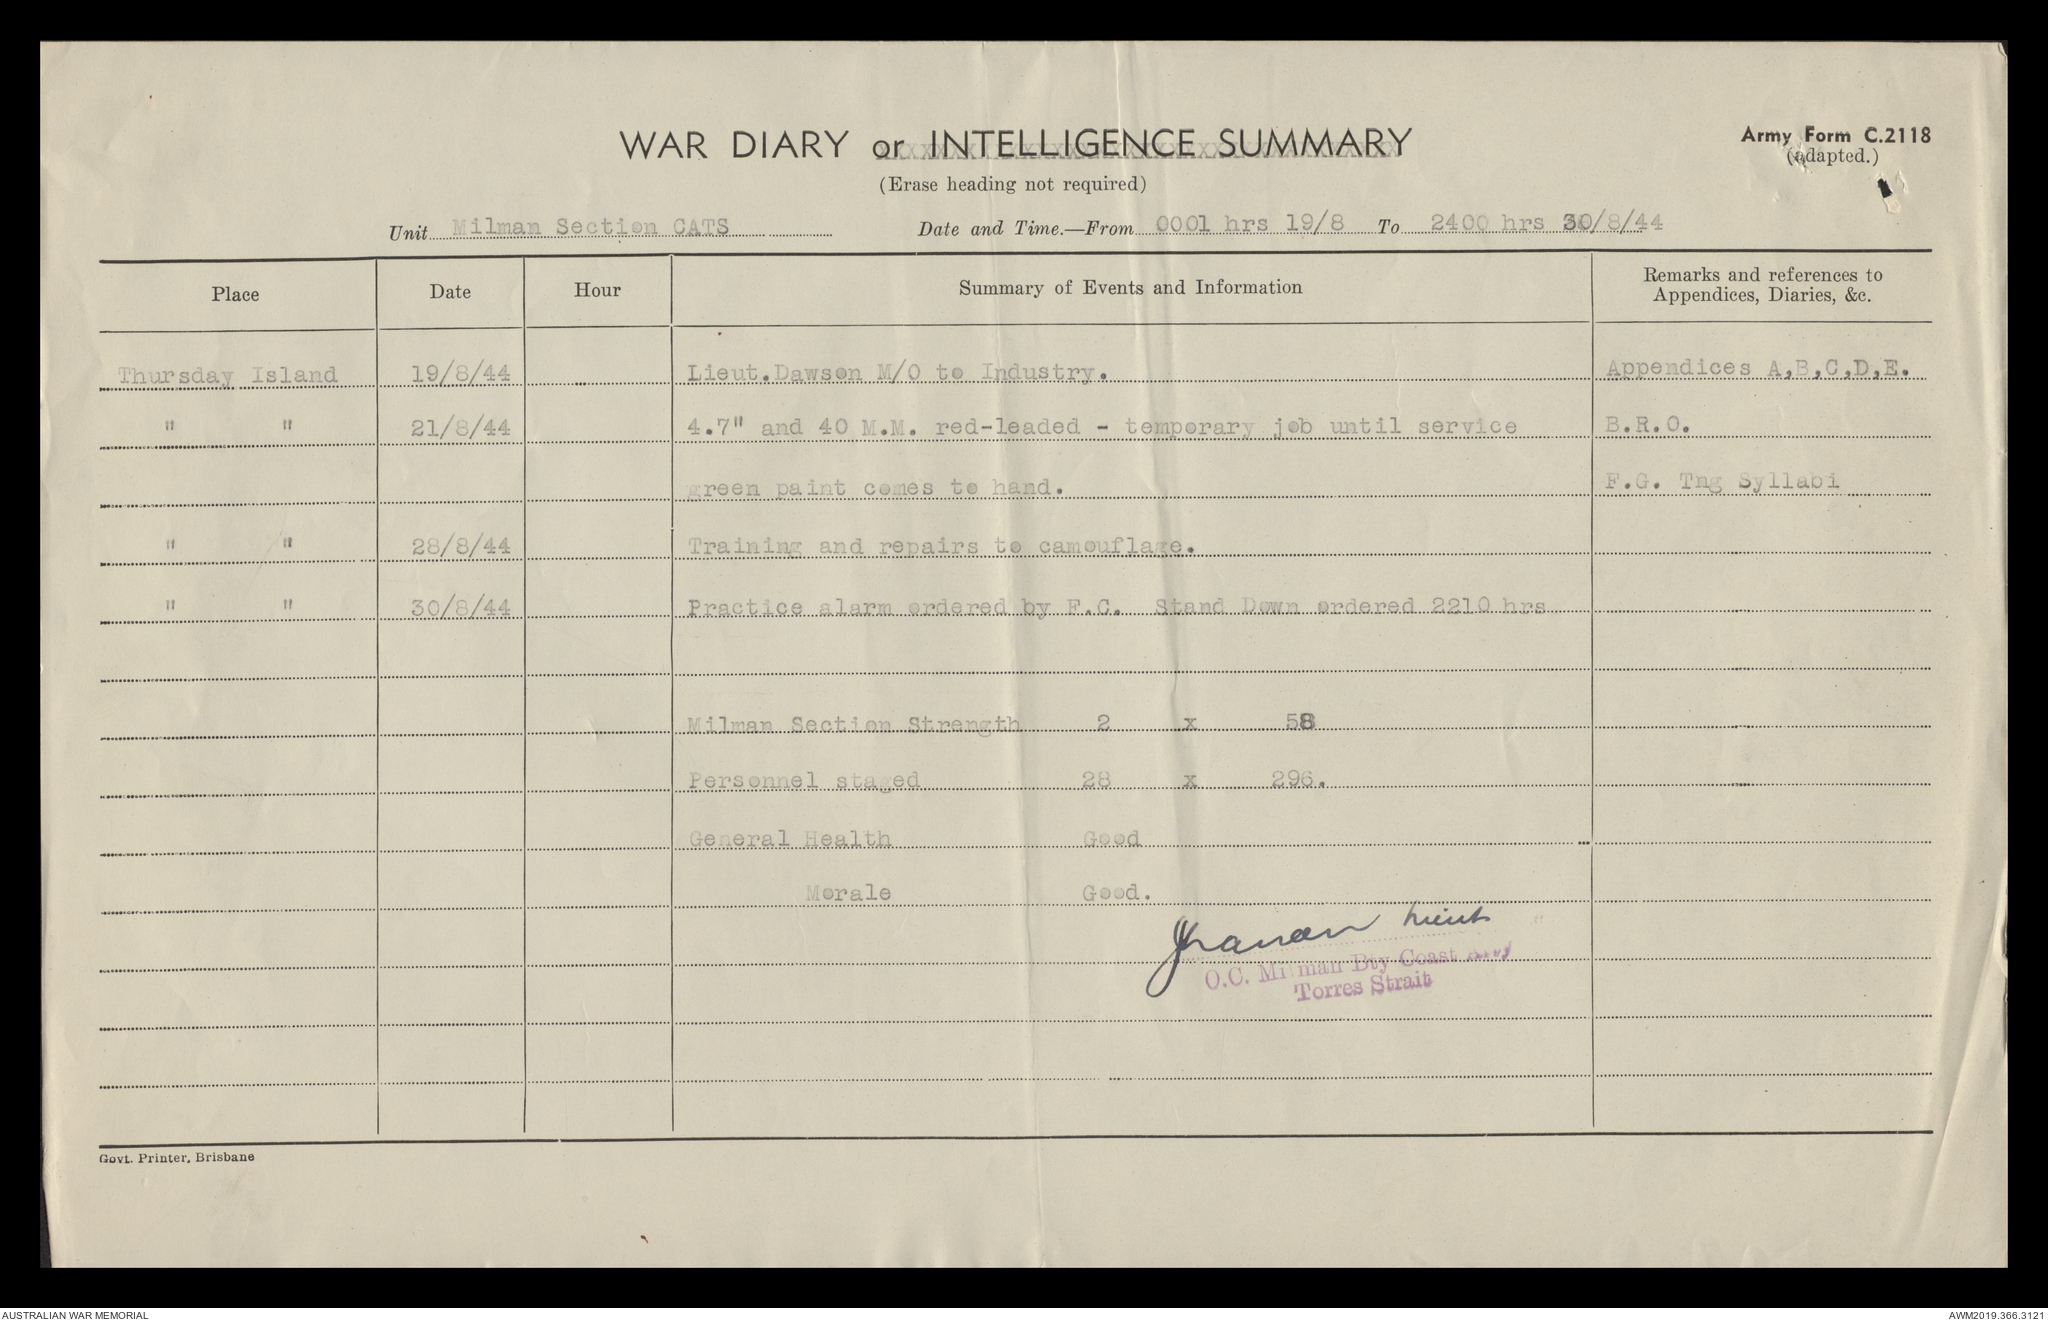 WAR DIARY or INTELLIGENCE SUMMARY
Army Form C.2118
(adapted.)
(Erase heading not required)
Unit Milman Section CATS Date and Time.—From 0001 hrs 19/8 To 2400 hrs 30/8/44
Place Date Hour Summary of Events and Information Remarks and references to
Appendices, Diaries, &c.
Thursday Island 19/8/44 Lieut.Dawson M/O to Industry. Appendices A,B,C,D,E.
" " 21/8/44 4.7" and 40 M.M. red-leaded - temporary job until service B.R.O.
green paint comes to hand. F.G. Tng Syllabi
" " 28/8/44 Training and repairs to camouflage.
" " 30/8/44 Practice alarm ordered by F.C. Stand Down ordered 2210 hrs
Milman Section Strength 2 x 58
Personnel staged 28 x 296.
General Health Good
Morale Good.
Lieut
O.C. Milman Bty Coast Arty
Torres Strait
Govt. Printer, Brisbane
AUSTRALIAN WAR MEMORIAL
AWM2019.366.3121